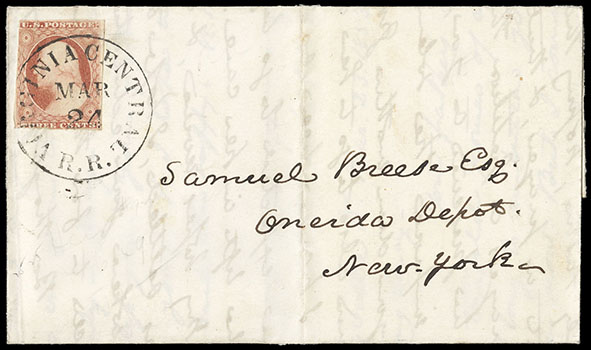 U.S. POSTAGE
THREE CENTS
VIRGINIA CENTRAL R.R.
MAR
24
Samuel Breese Esq.
Oneida Depot.
New-York